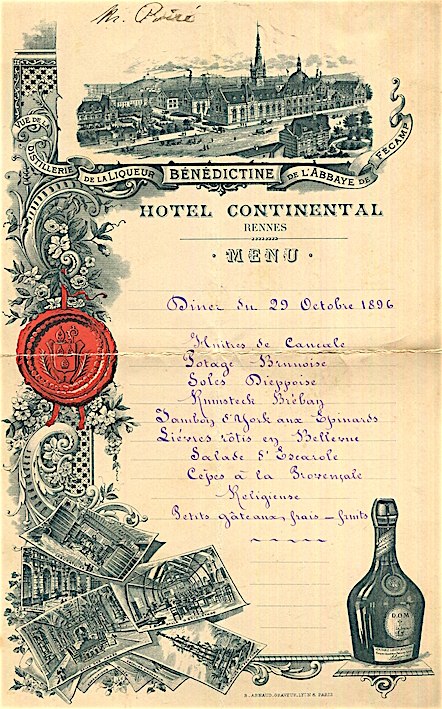 Mr. Poiré
VUE DE LA DISTILLERIE DE LA LIQUEUR BÉNÉDICTINE DE L'ABBAYE DE FÉCAMP
HOTEL CONTINENTAL
RENNES
MENU
Diner du 29 Octobre 1896
Huitres de Cancale
Potage Brunoise
Soles Dieppoise
Rumsteck Bréban
Jambon d'York aux Epinards
Lièvres rôtis en Bellevue
Salade d'Escarole
Cèpes à la Provençale
Religieuse
Petits gâteaux frais - fruits
D.O.M
B. ARNAUD, GRAVEUR, LYON & PARIS